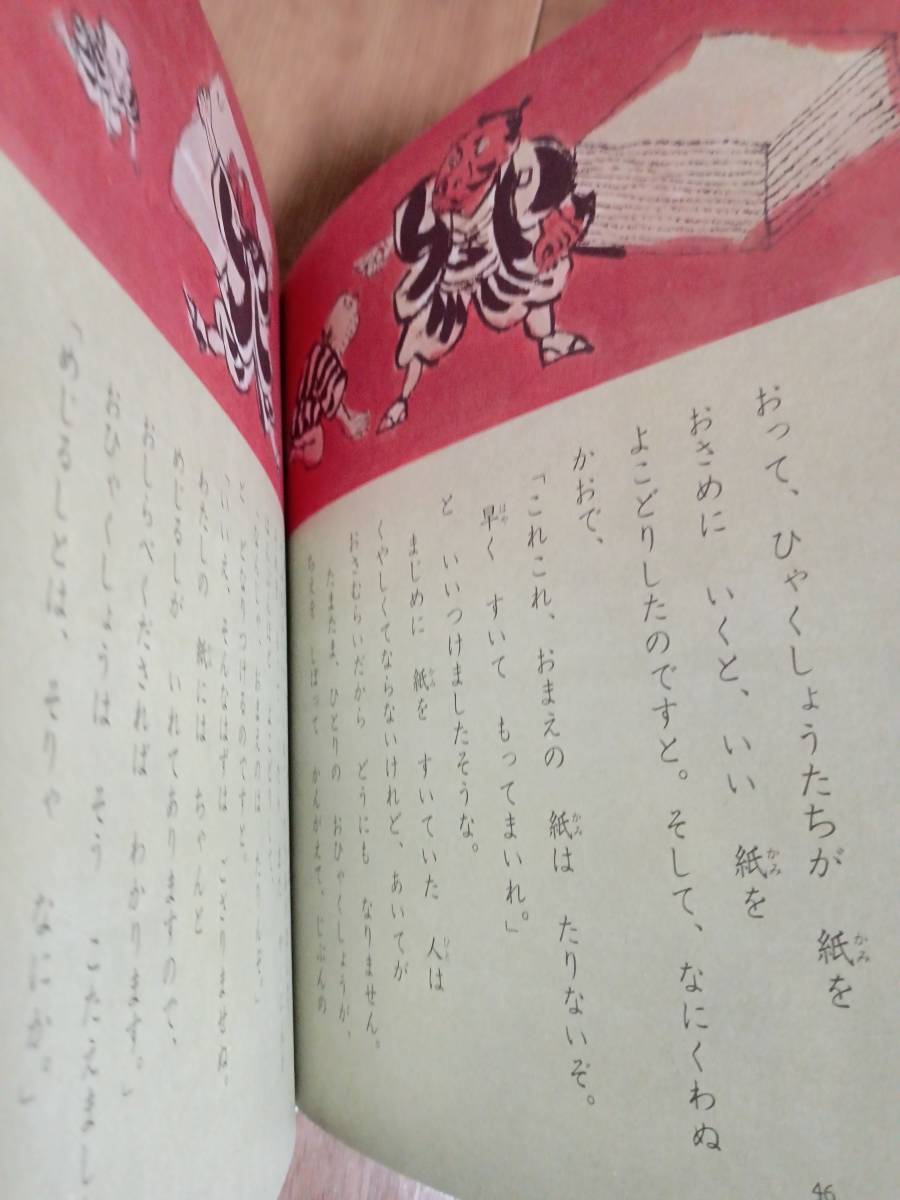 おって、ひゃくしょうたちが 紙を
おさめに いくと、いい 紙を
よこどりしたのですと。そして、なにくわぬ
かおで、
「これこれ、おまえの 紙は たりないぞ。
早く すいて もってまいれ。」
と いいつけましたそうな。
まじめに 紙を すいていた 人は
くやしくてならないけれど、あいてが
おさむらいだから どうにも なりません。
たまたま、ひとりの おひゃくしょうが、
ちえを しぼって かんがえて、じぶんの
と どなりつけるのですと。
「いいえ、そんなはずは ござりませぬ。
わたしの 紙には ちゃんと
めじるしが いれてありますので、
おしらべくだされば わかります。」
おひゃくしょうは そう こたえまし
「めじるしとは、そりゃ なにか。」
46